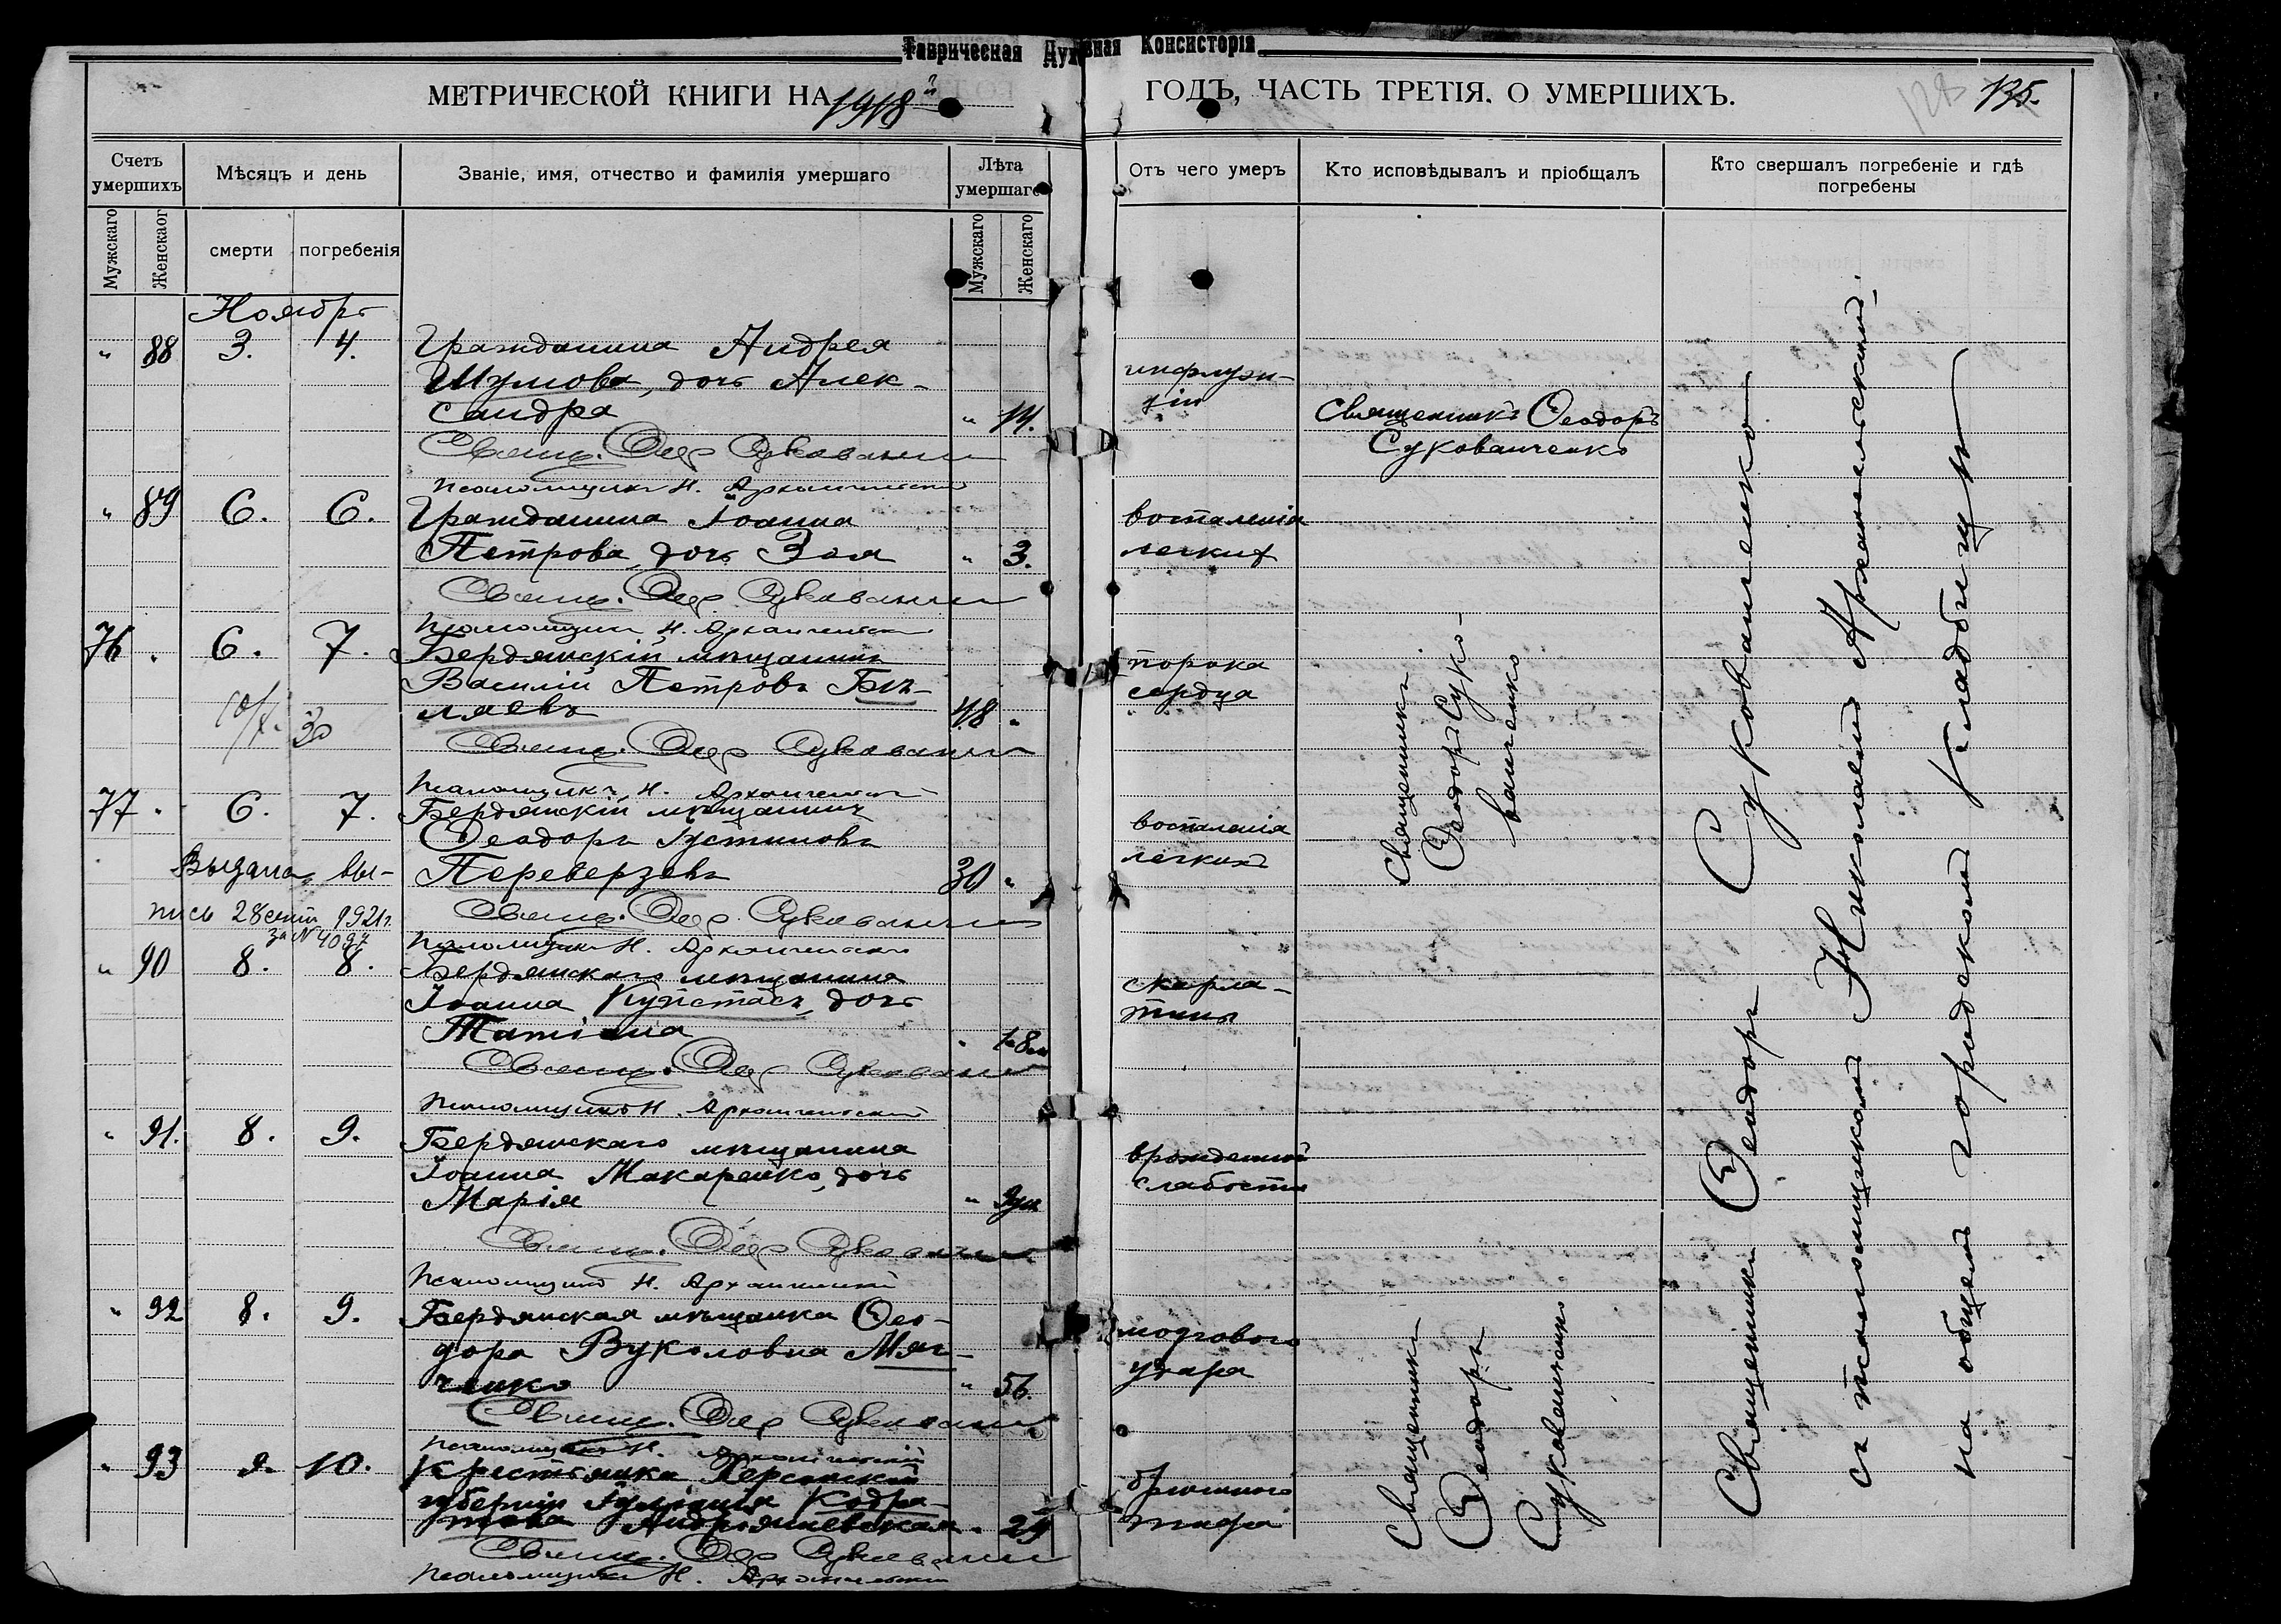 Таврическая Духовная Консисторія
МЕТРИЧЕСКОЙ КНИГИ НА 1918 й ГОДЪ, ЧАСТЬ ТРЕТІЯ. О УМЕРШИХЪ.
128 135.
Счетъ умершихъ
Мѣсяцъ и день
Званіе, имя, отчество и фамилія умершаго
Лѣта умершаго
Отъ чего умеръ
Кто исповѣдывалъ и пріобщалъ
Кто свершалъ погребеніе и гдѣ погребены
Мужскаго
Женскаог
смерти
погребенія
Мужскаго
Женскаго
Ноябрь
" 88 3. 4. Гражданина Андрея
Шумова, дочь Алек-
сандра " 14.
инфлуэн-
ціи
Священникъ Ѳеодоръ
Сукованченко
Свящ. Ѳеод Сукованч
Псаломщикъ Н. Архангельскій
" 89 6. 6. Гражданина Іоанна
Петрова, дочь Зоя " 3.
воспаленія
легкихъ
Свящ. Ѳеод Сукованч
Псаломщикъ Н. Архангельскій
76 " 6. 7. Бердянскій мѣщанинъ
Василій Петровъ Бѣ-
ляевъ 48 "
порока
сердца
Свящ. Ѳеод Сукованч
Псаломщикъ Н. Архангельскій
77 " 6. 7. Бердянскій мѣщанинъ
Ѳеодоръ Іустиновъ
Переверзевъ 30 "
воспаленія
легкихъ
Священникъ
Ѳеодоръ Суко-
ванченко
Выдана вы-
пись 28 сент 1921 г.
за № 4097
Свящ. Ѳеод Сукованч
Псаломщикъ Н. Архангельскій
" 90 8. 8. Бердянскаго мѣщанина
Іоанна Купстасъ, дочь
Татіана "
скарла-
тины
Свящ. Ѳеод Сукованч
Псаломщикъ Н. Архангельскій
" 91. 8. 9. Бердянскаго мѣщанина
Іоанна Макаренко, дочь
Марія "
врожденной
слабости
Свящ. Ѳеод Сукованч
Псаломщикъ Н. Архангельскій
" 92 8. 9. Бердянская мѣщанка Ѳео-
дора Вуколовна
" 56.
мозгового
удара
Свящ. Ѳеод Сукованч
Псаломщикъ Н. Архангельскій
" 93 9. 10. Крестьянка Херсонской
губерніи Іуліанія Кодра-
това Андріяшевская " 29
брюшного
тифа
Священникъ
Ѳеодоръ
Сукованченко
Свящ. Ѳеод Сукованч
Псаломщикъ Н. Архангельскій
Священникъ Ѳеодоръ Сукованченко
съ псаломщикомъ Николаемъ Архангельскимъ
на общемъ городскомъ кладбищѣ